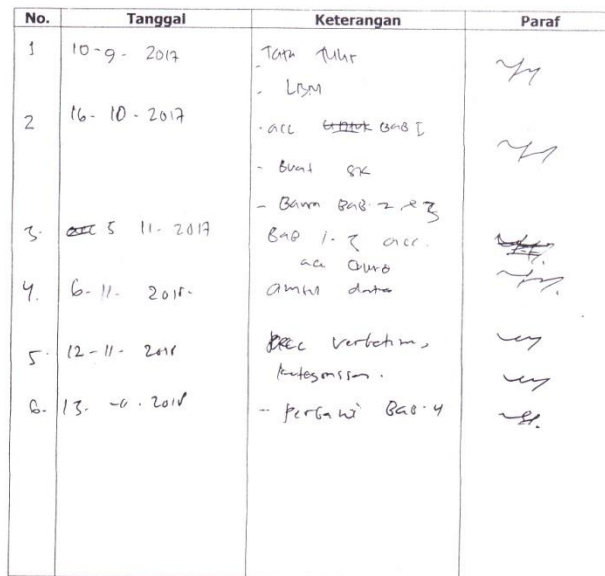 No. Tanggal Keterangan Paraf
1 10-9-2017 Tata Tulis
- LBM
2 16-10-2017 - acc BAB I
- Buat SK
- BAB 2 & 3
3. 5 11-2017 BAB 1-3 acc.
acc
4. 6-11- 2018. data
5. 12-11-2018 verbatim,
kategorisasi.
6. 13. 2018 - Perbaiki BAB 4